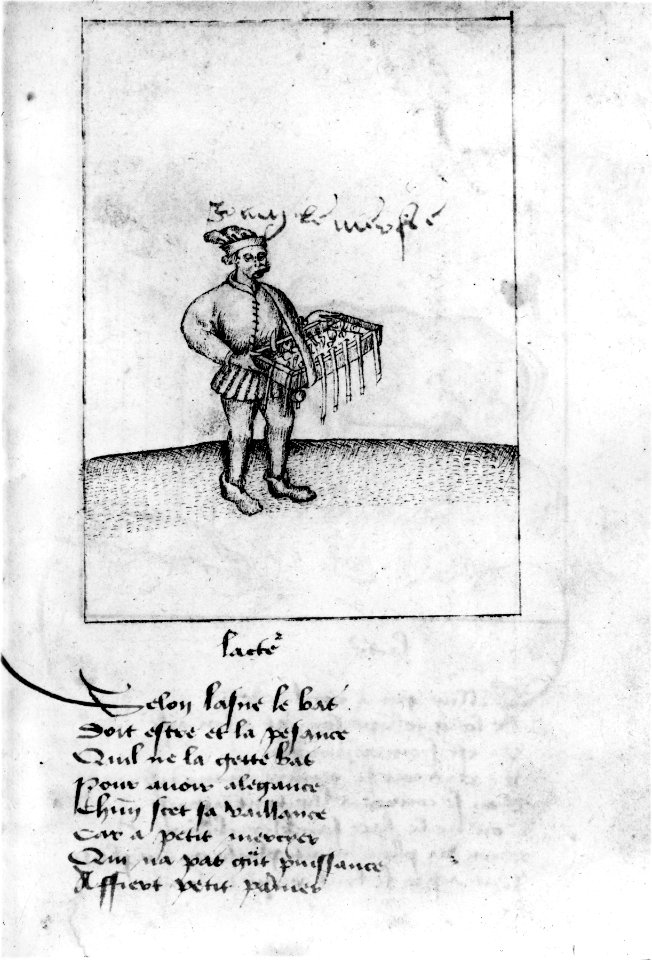 le
lacter
Selon lasne le bat
Doit estre et la pesance
Quil ne la gette bas
Pour auoir alegance
Chun scet sa vaillance
Car a petit mercyer
Qui na pas gnt puissance
Affiert petit panier